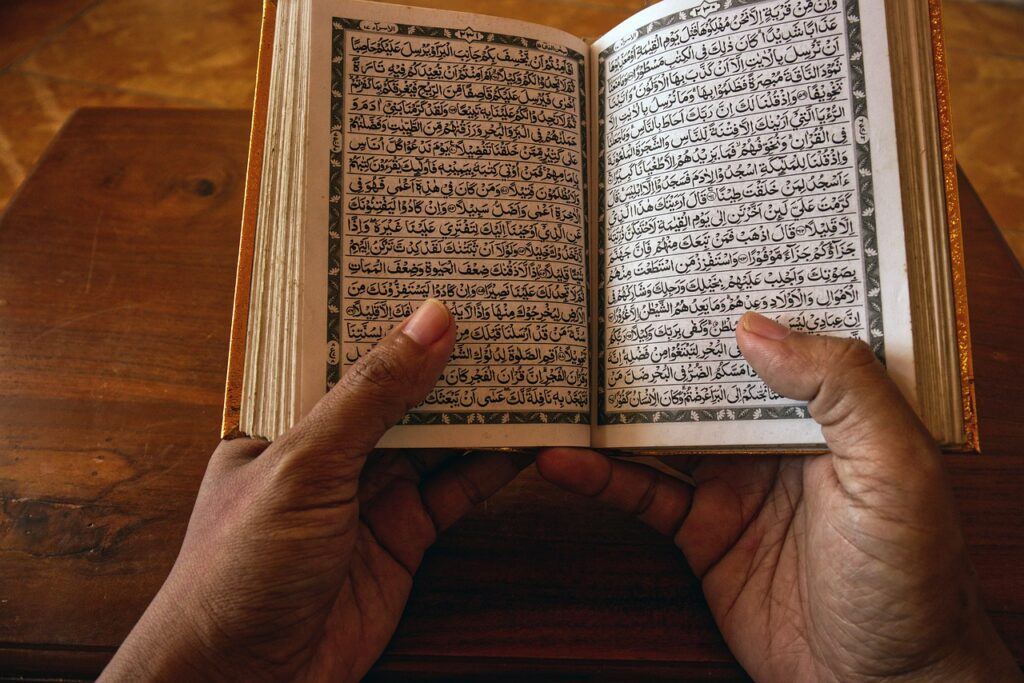 وَاِنْ مِّنْ قَرْيَةٍ اِلَّا نَحْنُ مُهْلِكُوْهَا قَبْلَ يَوْمِ الْقِيٰمَةِ اَوْ
عَذَابًا شَدِيْدًا كَانَ ذٰلِكَ فِى الْكِتٰبِ مَسْطُوْرًا
اَنْ نُّرْسِلَ بِالْاٰيٰتِ اِلَّآ اَنْ كَذَّبَ بِهَا الْاَوَّلُوْنَ وَاٰتَيْنَا
ثَمُوْدَ النَّاقَةَ مُبْصِرَةً فَظَلَمُوْا بِهَا وَمَا نُرْسِلُ بِالْاٰيٰتِ اِلَّا
تَخْوِيْفًا وَاِذْ قُلْنَا لَكَ اِنَّ رَبَّكَ اَحَاطَ بِالنَّاسِ وَمَا جَعَلْنَا
الرُّءْيَا الَّتِىْ اَرَيْنٰكَ اِلَّا فِتْنَةً لِّلنَّاسِ وَالشَّجَرَةَ الْمَلْعُوْنَةَ
فِى الْقُرْاٰنِ وَنُخَوِّفُهُمْ فَمَا يَزِيْدُهُمْ اِلَّا طُغْيَانًا كَبِيْرًا
وَاِذْ قُلْنَا لِلْمَلٰٓئِكَةِ اسْجُدُوْا لِاٰدَمَ فَسَجَدُوْٓا اِلَّآ اِبْلِيْسَ قَالَ
ءَاَسْجُدُ لِمَنْ خَلَقْتَ طِيْنًا قَالَ اَرَءَيْتَكَ هٰذَا الَّذِىْ
كَرَّمْتَ عَلَىَّ لَئِنْ اَخَّرْتَنِ اِلٰى يَوْمِ الْقِيٰمَةِ لَاَحْتَنِكَنَّ ذُرِّيَّتَهٗٓ
اِلَّا قَلِيْلًا قَالَ اذْهَبْ فَمَنْ تَبِعَكَ مِنْهُمْ فَاِنَّ جَهَنَّمَ
جَزَآؤُكُمْ جَزَآءً مَّوْفُوْرًا وَاسْتَفْزِزْ مَنِ اسْتَطَعْتَ مِنْهُمْ
بِصَوْتِكَ وَاَجْلِبْ عَلَيْهِمْ بِخَيْلِكَ وَرَجِلِكَ وَشَارِكْهُمْ فِى
الْاَمْوَالِ وَالْاَوْلَادِ وَعِدْهُمْ وَمَا يَعِدُهُمُ الشَّيْطٰنُ اِلَّا غُرُوْرًا
اِنَّ عِبَادِىْ لَيْسَ
سُلْطٰنٌ وَكَفٰى بِرَبِّكَ وَكِيْلًا
فِى الْبَحْرِ لِتَبْتَغُوْا مِنْ فَضْلِهٖ اِنَّهٗ
مَسَّكُمُ الضُّرُّ فِى الْبَحْرِ ضَلَّ مَنْ
نَجّٰىكُمْ اِلَى الْبَرِّ اَعْرَضْتُمْ وَكَانَ الْاِنْسَانُ كَفُوْرًا
اَفَاَمِنْتُمْ اَنْ يَّخْسِفَ بِكُمْ جَانِبَ الْبَرِّ اَوْ يُرْسِلَ عَلَيْكُمْ حَاصِبًا
ثُمَّ لَا تَجِدُوْا لَكُمْ وَكِيْلًا اَمْ اَمِنْتُمْ اَنْ يُّعِيْدَكُمْ فِيْهِ تَارَةً
اُخْرٰى فَيُرْسِلَ عَلَيْكُمْ قَاصِفًا مِّنَ الرِّيْحِ فَيُغْرِقَكُمْ بِمَا كَفَرْتُمْ
ثُمَّ لَا تَجِدُوْا لَكُمْ عَلَيْنَا بِهٖ تَبِيْعًا وَلَقَدْ كَرَّمْنَا بَنِىْٓ اٰدَمَ وَ
حَمَلْنٰهُمْ فِى الْبَرِّ وَالْبَحْرِ وَرَزَقْنٰهُمْ مِّنَ الطَّيِّبٰتِ وَفَضَّلْنٰهُمْ
عَلٰى كَثِيْرٍ مِّمَّنْ خَلَقْنَا تَفْضِيْلًا يَوْمَ نَدْعُوْا كُلَّ اُنَاسٍ
بِاِمَامِهِمْ فَمَنْ اُوْتِىَ كِتٰبَهٗ بِيَمِيْنِهٖ فَاُولٰٓئِكَ يَقْرَءُوْنَ كِتٰبَهُمْ
وَلَا يُظْلَمُوْنَ فَتِيْلًا وَمَنْ كَانَ فِىْ هٰذِهٖٓ اَعْمٰى فَهُوَ فِى
الْاٰخِرَةِ اَعْمٰى وَاَضَلُّ سَبِيْلًا وَاِنْ كَادُوْا لَيَفْتِنُوْنَكَ
عَنِ الَّذِىْٓ اَوْحَيْنَآ اِلَيْكَ لِتَفْتَرِىَ عَلَيْنَا غَيْرَهٗ وَاِذًا
لَّاتَّخَذُوْكَ خَلِيْلًا وَلَوْلَآ اَنْ ثَبَّتْنٰكَ لَقَدْ كِدْتَّ تَرْكَنُ اِلَيْهِمْ
شَيْـًٔا قَلِيْلًا اِذًا لَّاَذَقْنٰكَ ضِعْفَ الْحَيٰوةِ وَضِعْفَ الْمَمَاتِ
ثُمَّ لَا تَجِدُ لَكَ عَلَيْنَا نَصِيْرًا وَاِنْ كَادُوْا لَيَسْتَفِزُّوْنَكَ مِنَ
الْاَرْضِ لِيُخْرِجُوْكَ مِنْهَا وَاِذًا لَّا خِلٰفَكَ اِلَّا قَلِيْلًا
سُنَّةَ مَنْ قَدْ اَرْسَلْنَا قَبْلَكَ مِنْ لِسُنَّتِنَا
تَحْوِيْلًا اَقِمِ الصَّلٰوةَ لِدُلُوْكِ الشَّمْسِ
وَقُرْاٰنَ الْفَجْرِ اِنَّ قُرْاٰنَ الْفَجْرِ كَانَ
فَتَهَجَّدْ بِهٖ نَافِلَةً لَّكَ عَسٰٓى اَنْ يَّبْعَثَكَ